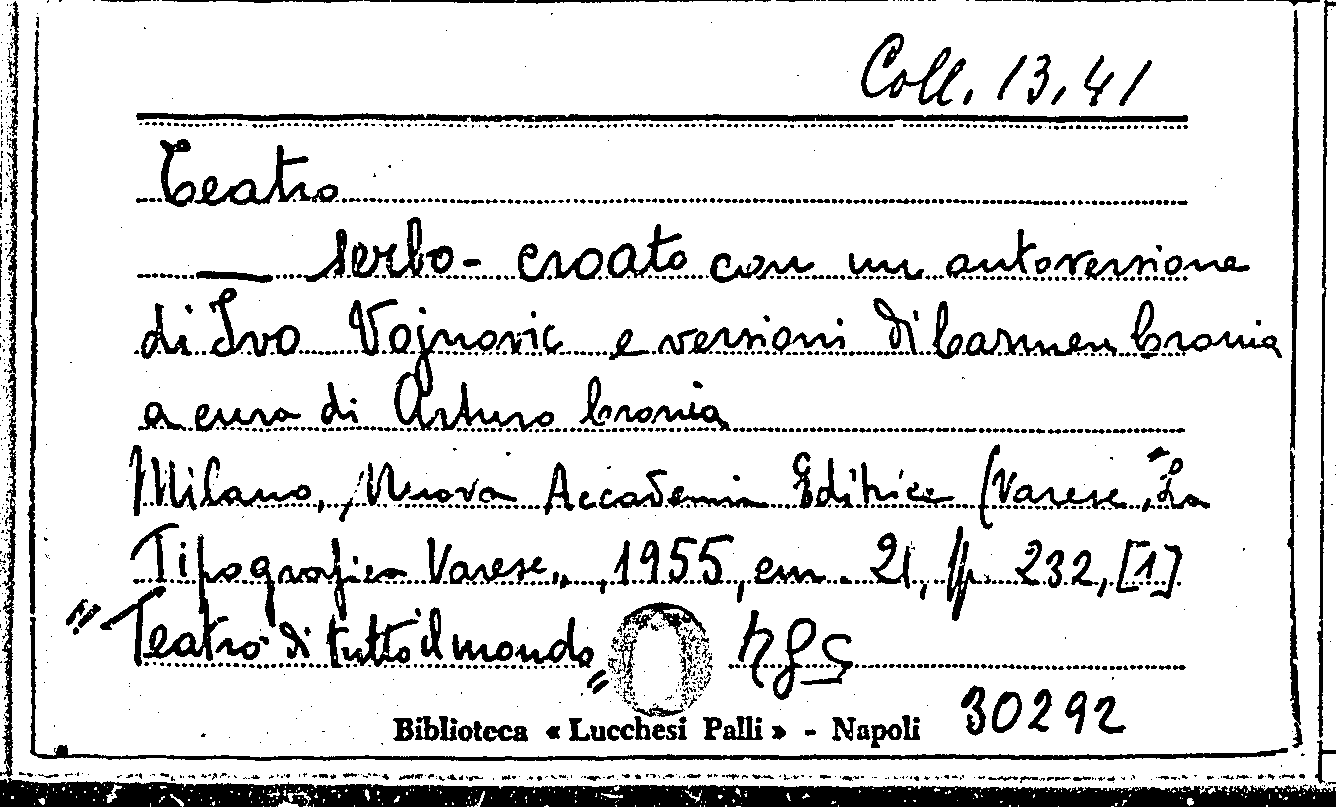 Coll. 13,41
Teatro
— serbo-croato con un autoversione
di Ivo Vojnovic e versioni di Carmen Cronia
a cura di Arturo Cronia
Milano, Nuova Accademia Editrice (Varese, "La
Tipografica Varese", 1955, cm. 21, pp. 232, [1]
"Teatro di tutto il mondo"
30292
Biblioteca « Lucchesi Palli » - Napoli